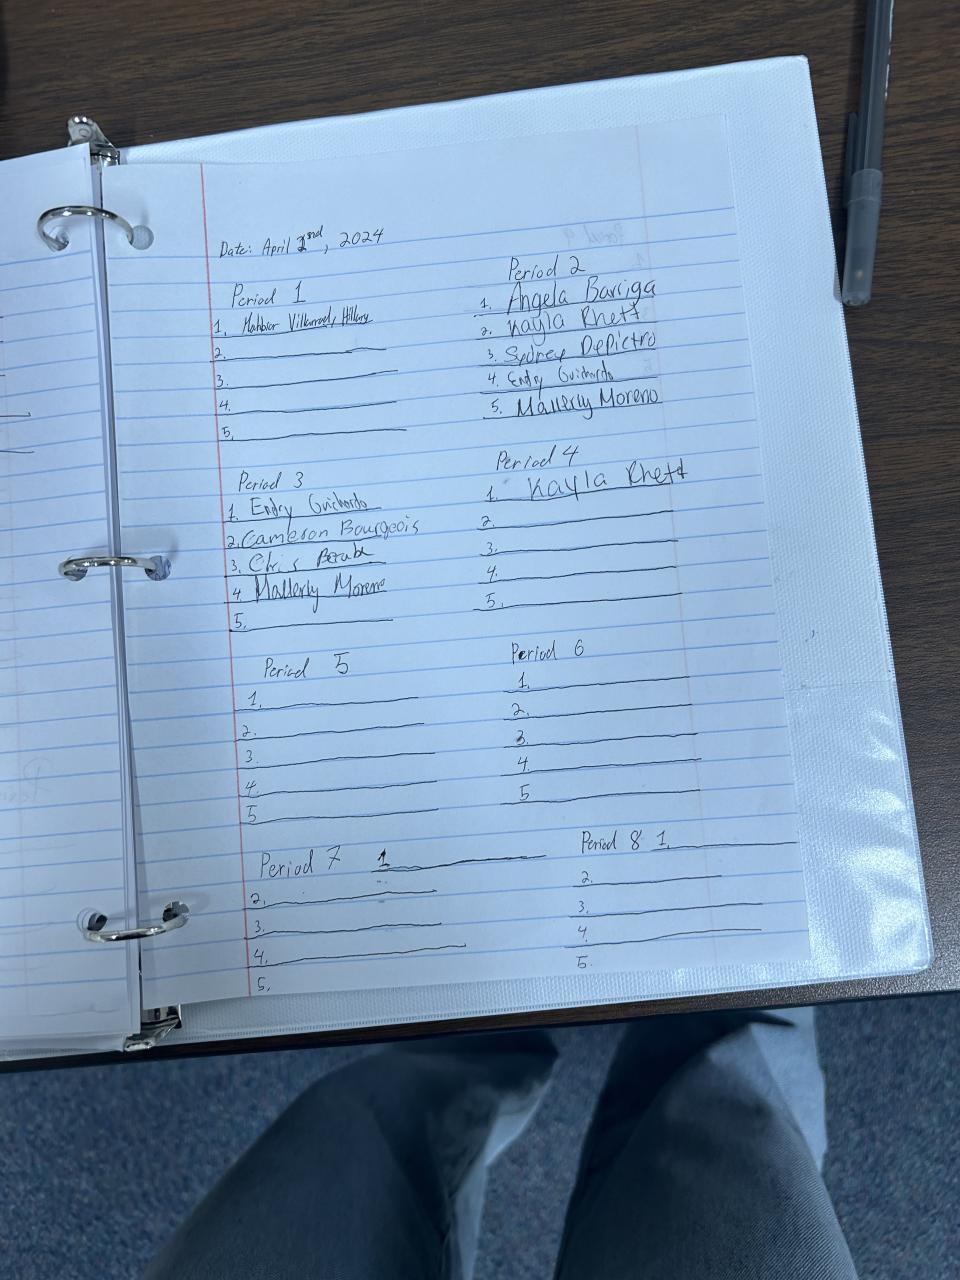 Date: April 2nd, 2024
Period 1
1. Hillary
2.
3.
4.
5.
Period 2
1. Angela Barriga
2. Kayla Rhett
3. Sydney DePietro
4. Endry Guichardo
5. Mallerly Moreno
Period 3
1. Endry Guichardo
2. Cameron Bourgeois
3. Chris
4. Mallerly Moreno
5.
Period 4
1. Kayla Rhett
2.
3.
4.
5.
Period 5
1.
2.
3.
4.
5
Period 6
1.
2.
3.
4.
5
Period 7 1
2.
3.
4.
5.
Period 8 1.
2.
3.
4.
5.